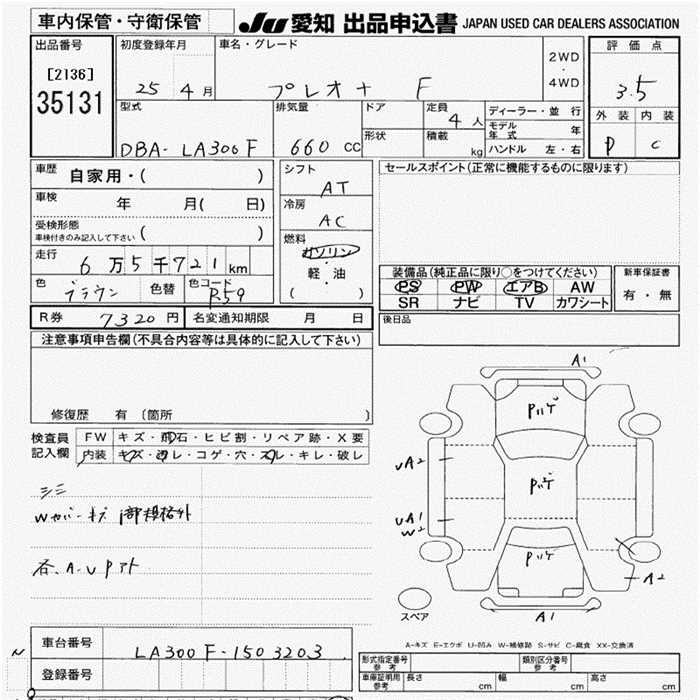 車内保管・守衛保管
JU 愛知 出品申込書 JAPAN USED CAR DEALERS ASSOCIATION
出品番号
[2136]
35131
初度登録年月
25 4 月
車名・グレード
プレオ+ F
2WD
・
4WD
評価点
3.5
外装 内装
D C
型式
DBA- LA300F
排気量
660 CC
ドア
形状
定員
4 人
積載
kg
ディーラー・並 行
モデル年式 年
ハンドル 左・右
車歴
自家用・( )
車検 年 月( 日)
受検形態
車検付きのみ記入して下さい ( )
走行
6 万 5 千 721 km
色 ブラウン 色替 色コード R59
シフト
AT
冷房
AC
燃料
ガソリン
・
軽・油
( )
セールスポイント(正常に機能するものに限ります)
装備品(純正品に限り○をつけてください)
PS PW エアB AW
SR ナビ TV カワシート
新車保証書
有・無
R券 7320 円 名変通知期限 月 日
後日品
注意事項申告欄(不具合内容等は具体的に記入して下さい)
修復歴 有 〔箇所 〕
検査員
記入欄
FW キズ・飛石・ヒビ割・リペア跡・X要
内装 キズ・汚レ・コゲ・穴・スレ・キレ・破レ
シミ
Wカバーキズ 下部規格外
各、A.U Pアト
A1
Pハゲ
UA2
Pハゲ
UA1
W2
Pハゲ
A2
A1
スペア
A-キズ E-エクボ U-凹み W-補修跡 S-サビ C-腐食 XX-交換済
車台番号 LA300F-1503203
登録番号
N
形式指定番号
参考
類別区分番号
参考
車庫証明用
参考
長さ cm 幅 cm 高さ cm